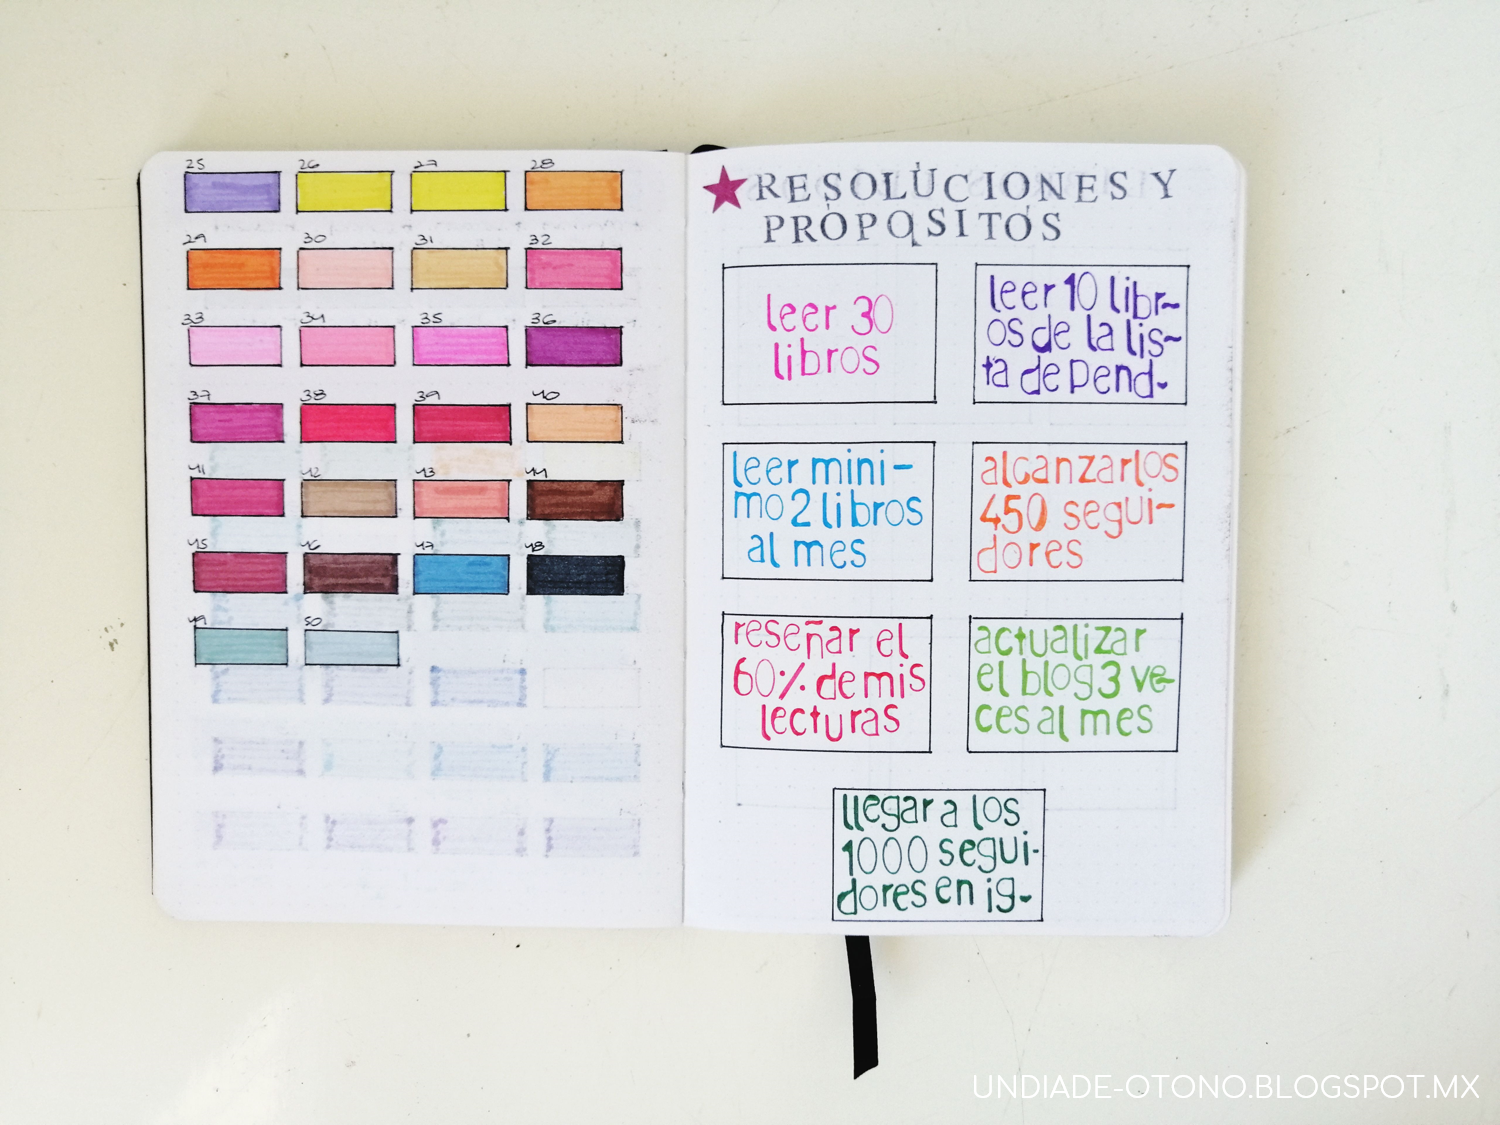 25 26 27 28
29 30 31 32
33 34 35 36
37 38 39 40
41 42 43 44
45 46 47 48
49 50
RESOLUCIONES Y
PROPOSITOS
leer 30
libros
leer 10 libr-
os de la lis-
ta de pend.
leer mini-
mo 2 libros
al mes
alcanzar los
450 segui-
dores
reseñar el
60% de mis
lecturas
actualizar
el blog 3 ve-
ces al mes
llegar a los
1000 segui-
dores en ig.
UNDIADE-OTONO.BLOGSPOT.MX